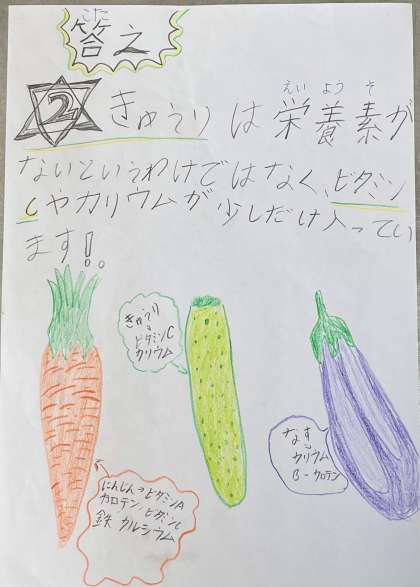 こた
答え
② きゅうりは栄養素が
えいようそ
ないというわけではなく、ビタミン
Cやカリウムが少しだけ入ってい
ます!。
きゅうり
→
ビタミンC
カリウム
なす→
カリウム
B-カロテン
にんじん→ビタミンA
カロテン ビタミンC
鉄 カルシウム